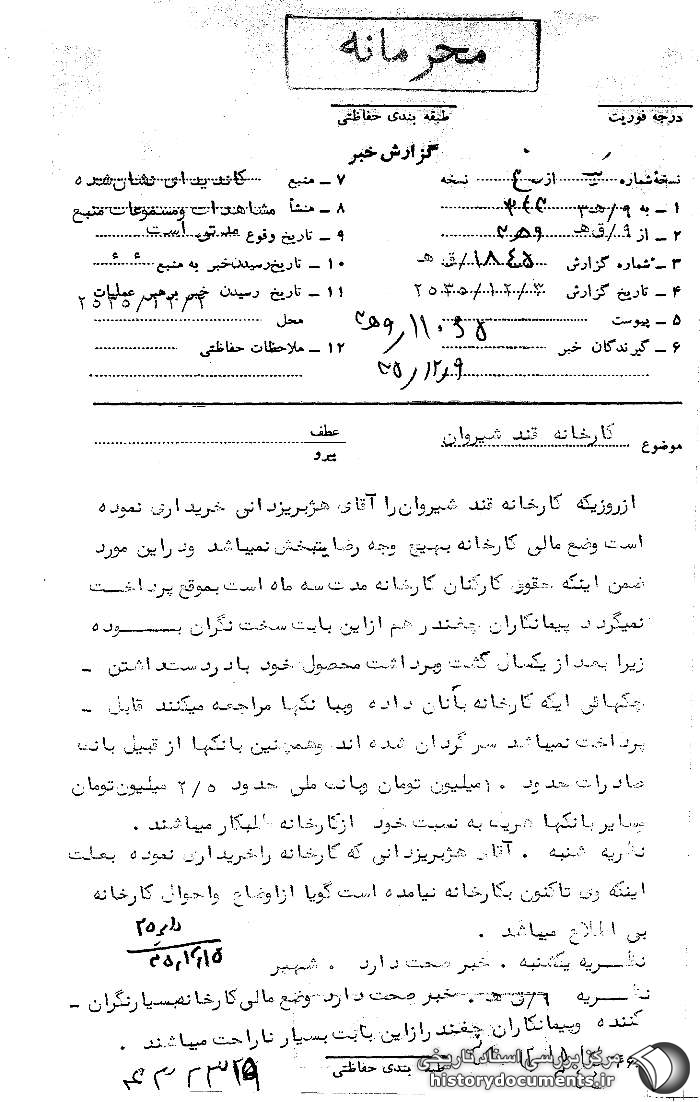 محرمانه
درجه فوریت
طبقه بندی حفاظتی
گزارش خبر
نسخهٔ شماره از نسخه
۱ ـ به ۹/هـ ۳
۲ ـ از ۹/ق هـ
۳ ـ شماره گزارش ۱۸۴۵/ق هـ
۴ ـ تاریخ گزارش ۲۵۳۵/۱۲/۳
۵ ـ پیوست
۶ ـ گیرندگان خبر
۷ ـ منبع کاندیدای نشان شده
۸ ـ منشأ مشاهدات ومسموعات منبع
۹ ـ تاریخ وقوع مدتی است
۱۰ ـ تاریخ رسیدن خبر به منبع
۱۱ ـ تاریخ رسیدن خبر برهبر عملیات
محل
۱۲ ـ ملاحظات حفاظتی
۳۵/۱۲/۹
موضوع کارخانه قند شیروان
عطف
پیرو
ازروزیکه کارخانه قند شیروان را آقای هژبریزدانی خریداری نموده
است وضع مالی کارخانه بهیچ وجه رضایتبخش نمیباشد ودراین مورد
ضمن اینکه حقوق کارکنان کارخانه مدت سه ماه است بموقع پرداخت
نمیگردد پیمانکاران چغندر هم ازاین بابت سخت نگران بوده
زیرا بعد از یکسال کشت وبرداشت محصول خود بادردست داشتن ـ
چکهائی ایکه کارخانه بآنان داده وببانکها مراجعه میکنند قابل ـ
پرداخت نمیباشد سرگردان شده اند وهمچنین بانکها از قبیل بانک
صادرات حدود ۱۰ میلیون تومان وبانک ملی حدود ۲/۵ میلیون تومان
وسایر بانکها هریک به نسبت خود ازکارخانه طلبکار میباشند .
نظریه شنبه . آقای هژبریزدانی که کارخانه راخریداری نموده بعلت
اینکه وی تاکنون بکارخانه نیامده است گویا ازاوضاع واحوال کارخانه
بی اطلاع میباشد .
نظریه یکشنبه . خبر صحت دارد . شهیر
نظریه ۹/ق هـ . خبر صحت دارد وضع مالی کارخانه بسیارنگران ـ
کننده وپیمانکاران چغندر ازاین بابت بسیار ناراحت میباشند .
طبقه بندی حفاظتی
مرکز بررسی اسناد تاریخی
historydocuments.ir